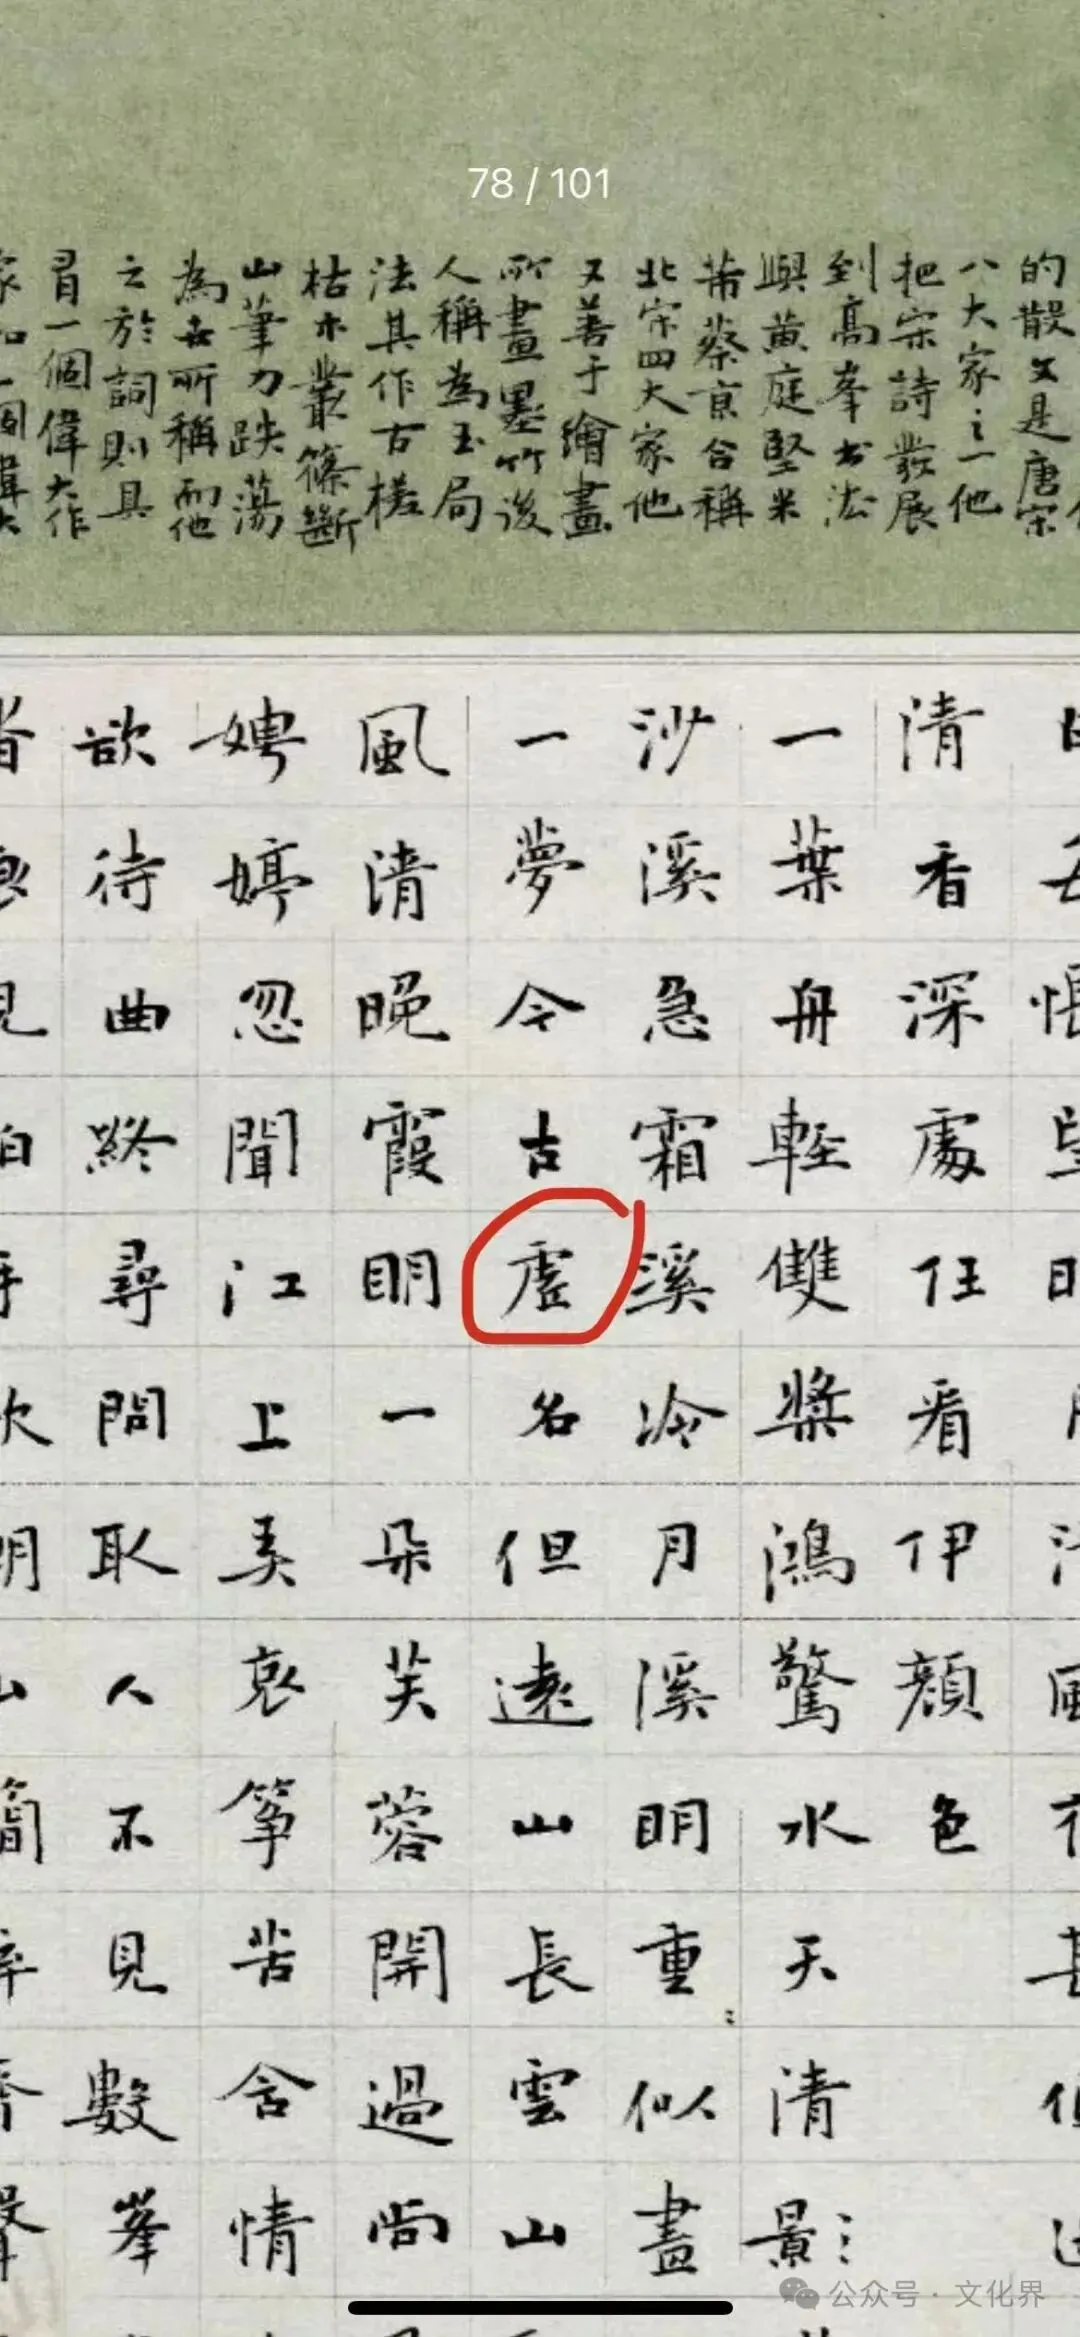 78 / 101
的散文是唐宋
八大家之一他
把宋詩發展
到高峯書法
與黃庭堅米
芾蔡京合稱
北宋四大家他
又善于繪畫
所畫墨竹後
人稱為玉局
法其作古槎
枯木叢篠斷
山筆力跌蕩
為世所稱而他
之於詞則具
一個偉大作
清香深處任看伊顏色
一葉舟輕雙槳鴻驚水天清影
沙溪急霜溪冷月溪明重似畫
一夢今古虛名但遠山長雲山
風清晚霞明一朵芙蓉開過尚
娉婷忽聞江上弄哀箏苦含情
欲待曲終尋問取人不見數峯
公众号 · 文化界